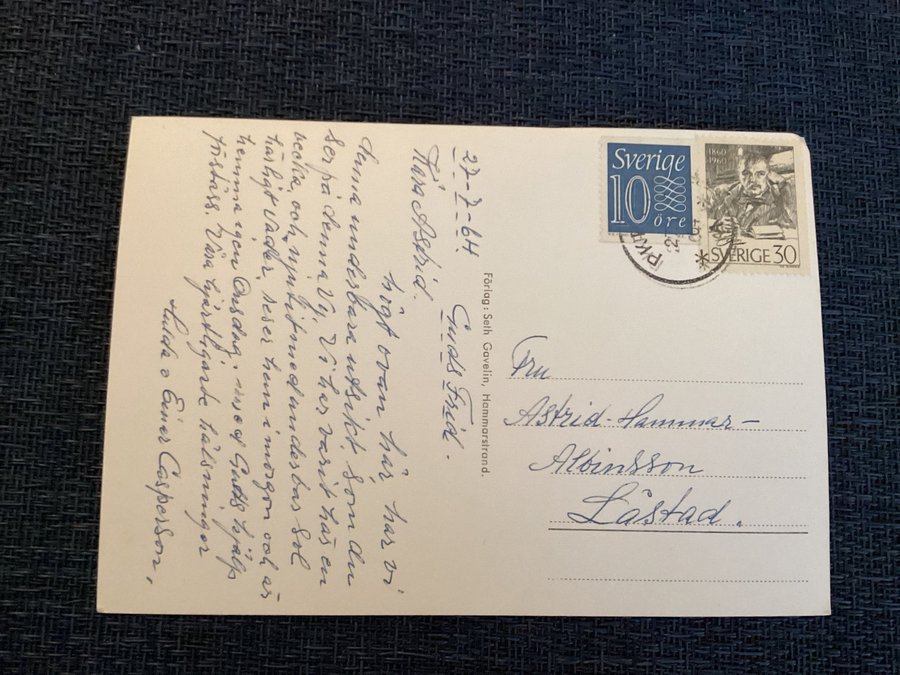 27-7-64. Guds Frid.
Kära Astrid.
högt ovan här har vi
denna underbara utsikt, som du
ser på denna vy. Vi har varit här en
vecka, och njutit med underbar Sol
härligt väder, reser hem i morgon och är
hemma igen Onsdag, med Guds hjälp
förståss. Våra hjärtligaste hälsningar
Hulda o Einar Casperson,
Förlag: Seth Gavelin, Hammarstrand.
Sverige
10
öre
1860
1960
SVERIGE 30
Fru
Astrid Hammar-
Albinsson
Låstad.